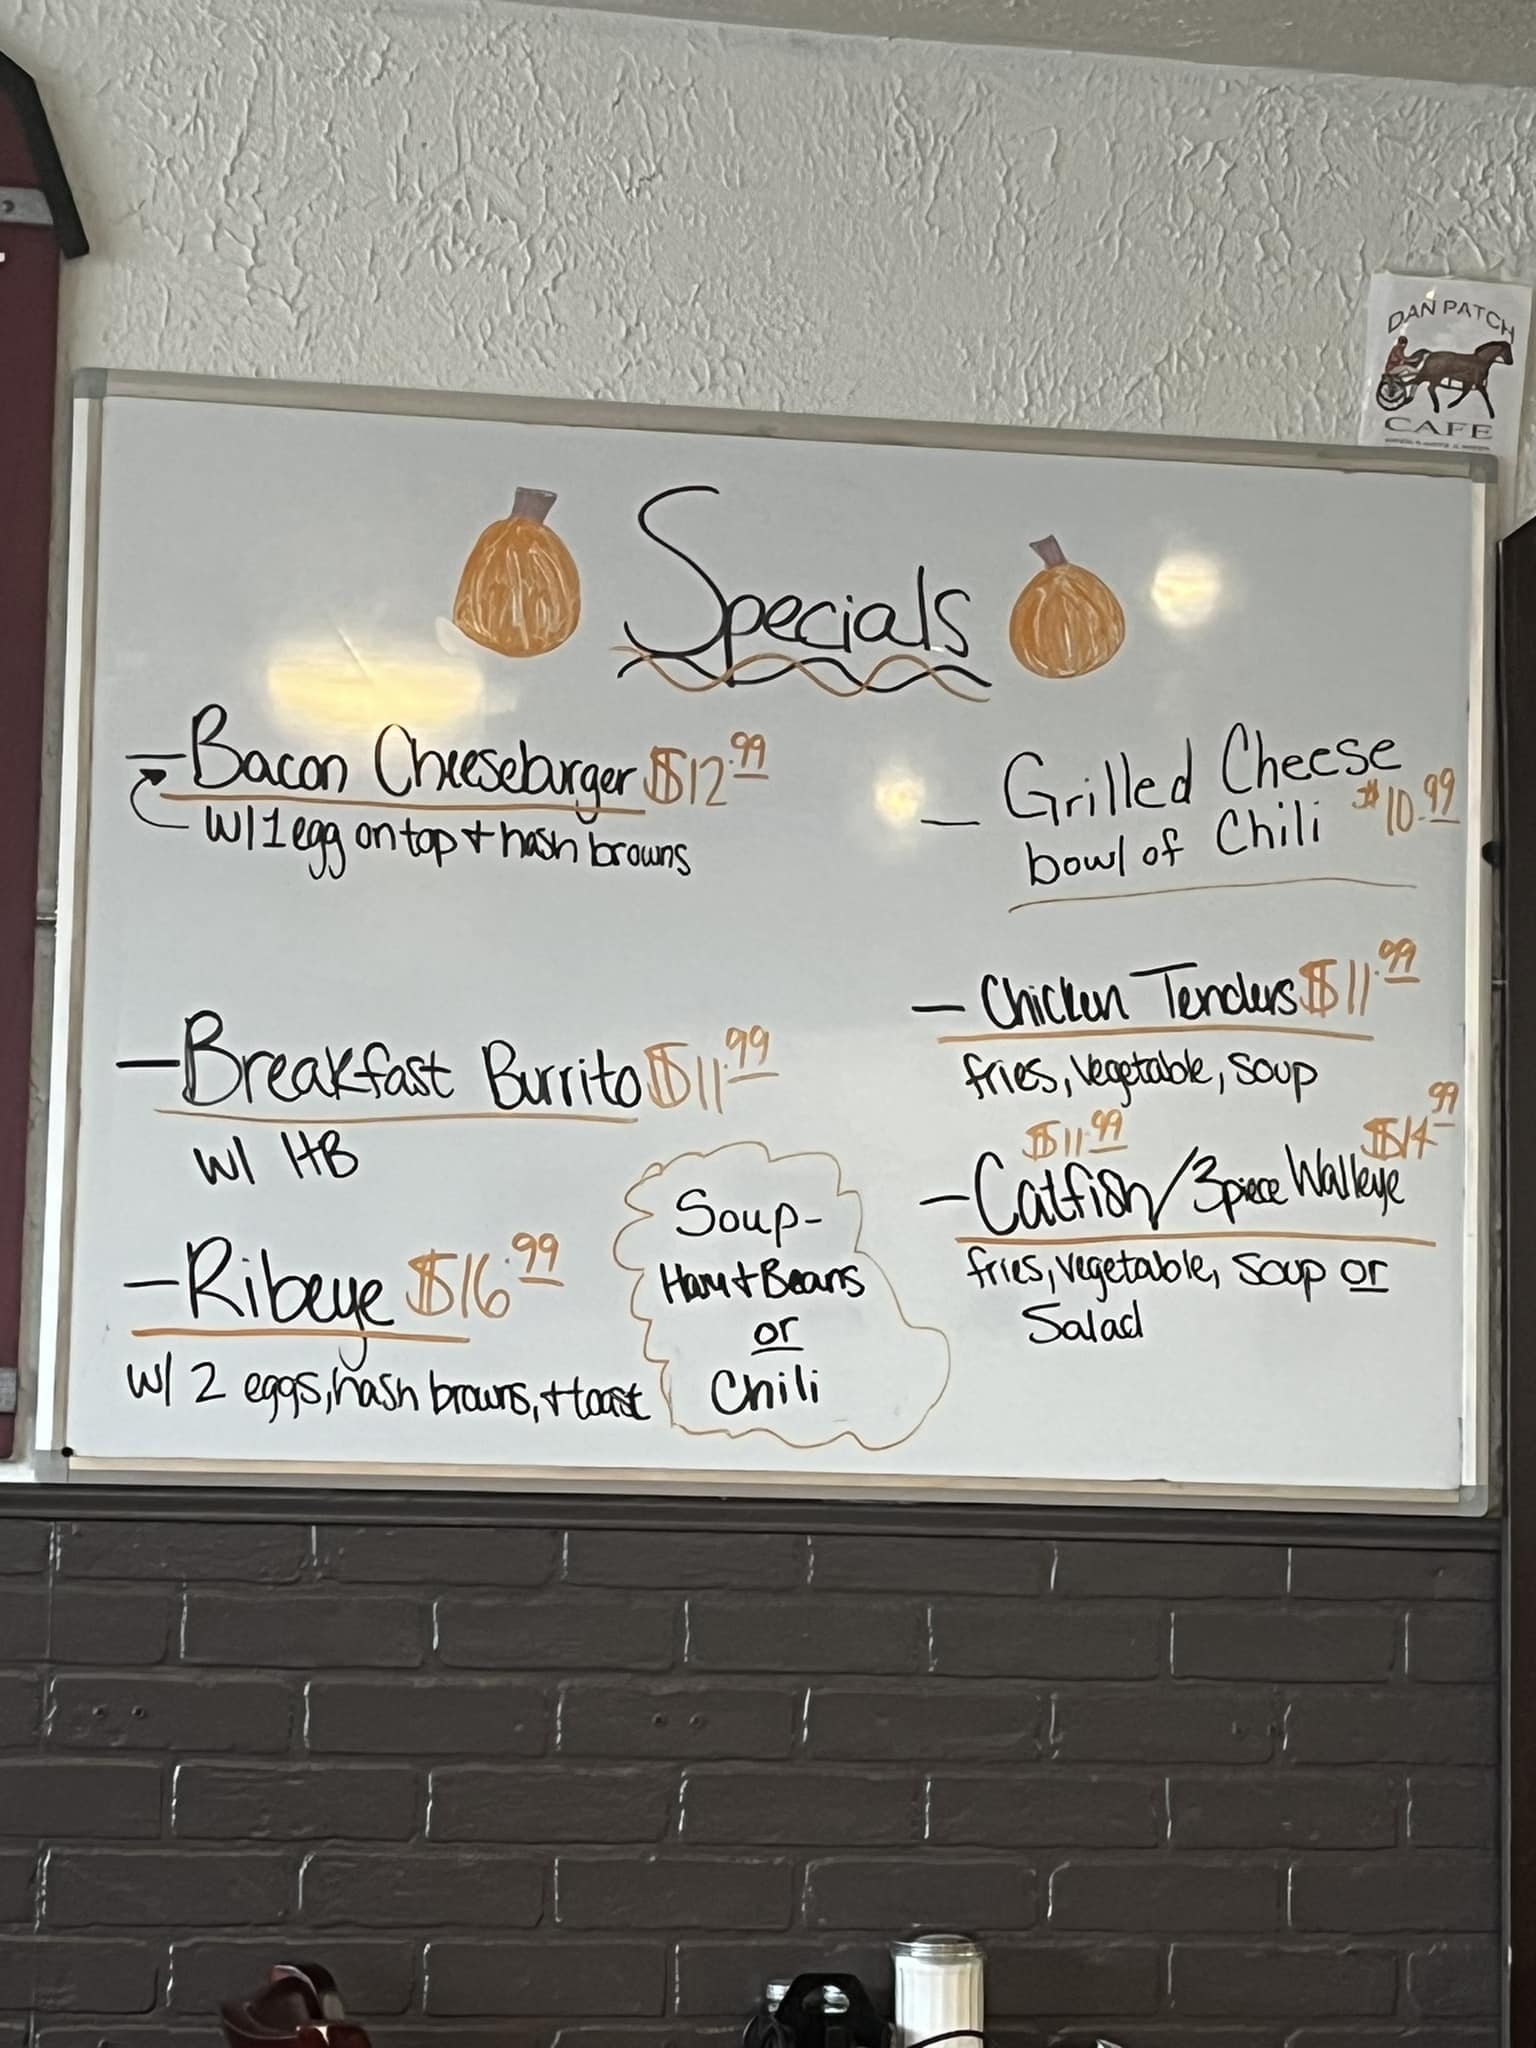 DAN PATCH
CAFE
Specials
- Bacon Cheeseburger $12.99
w/ 1 egg on top + hash browns
- Breakfast Burrito $11.99
w/ HB
- Ribeye $16.99
w/ 2 eggs, hash browns, + toast
Soup-
Ham + Beans
or
Chili
- Grilled Cheese
bowl of Chili $10.99
- Chicken Tenders $11.99
fries, vegetable, soup
$11.99 $14.99
- Catfish/3piece Walleye
fries, vegetable, soup or
Salad